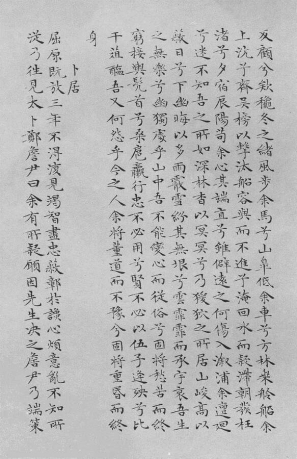 反顧兮欸秋冬之緒風步余馬兮山皋邸余車兮方林乘舲船余
上沅兮齊吳榜以擊汰船容與而不進兮淹回水而疑滯朝發枉
渚兮夕宿辰陽苟余心其端直兮雖僻遠之何傷入溆浦余儃佪
兮迷不知吾之所如深林杳以冥冥兮乃猨狖之所居山峻高以
蔽日兮下幽晦以多雨霰雪紛其無垠兮雲霏霏而承宇哀吾生
之無樂兮幽獨處乎山中吾不能變心而從俗兮固將愁苦而終
窮接輿髡首兮桑扈臝行忠不必用兮賢不必以伍子逢殃兮比
干菹醢吾又何怨乎今之人余將董道而不豫兮固將重昏而終
身
卜居
屈原既放三年不得復見竭智盡忠蔽鄣於讒心煩意亂不知所
從乃往見太卜鄭詹尹曰余有所疑願因先生決之詹尹乃端策